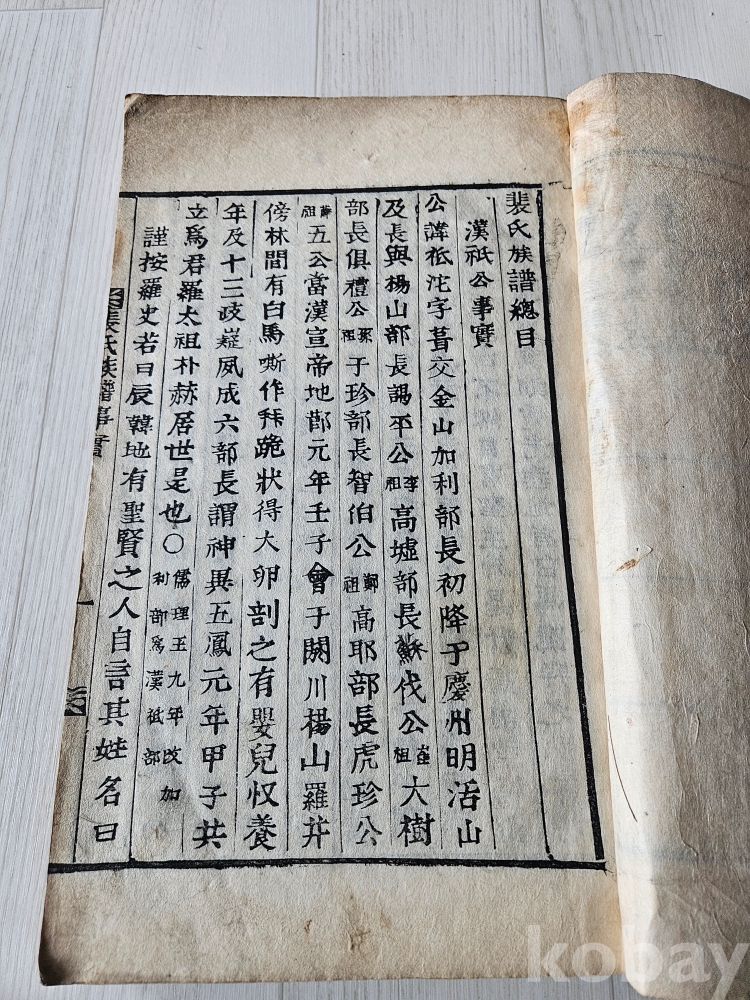 裴氏族譜總目
漢祇公事實
公諱祗沱字萇交金山加利部長初降于慶州明活山
及長與楊山部長謁平公李祖高墟部長蘇伐公崔祖大樹
部長俱禮公孫祖于珍部長智伯公鄭祖高耶部長虎珍公
薛祖五公當漢宣帝地節元年壬子會于閼川楊山羅井
傍林間有白馬嘶作拜跪狀得大卵剖之有嬰兒收養
年及十三歧嶷夙成六部長謂神異五鳳元年甲子共
立爲君羅太祖朴赫居世是也〇儒理王九年改加利部爲漢祗部
謹按羅史若曰辰韓地有聖賢之人自言其姓名曰
裴氏族譜事實
一
kobay